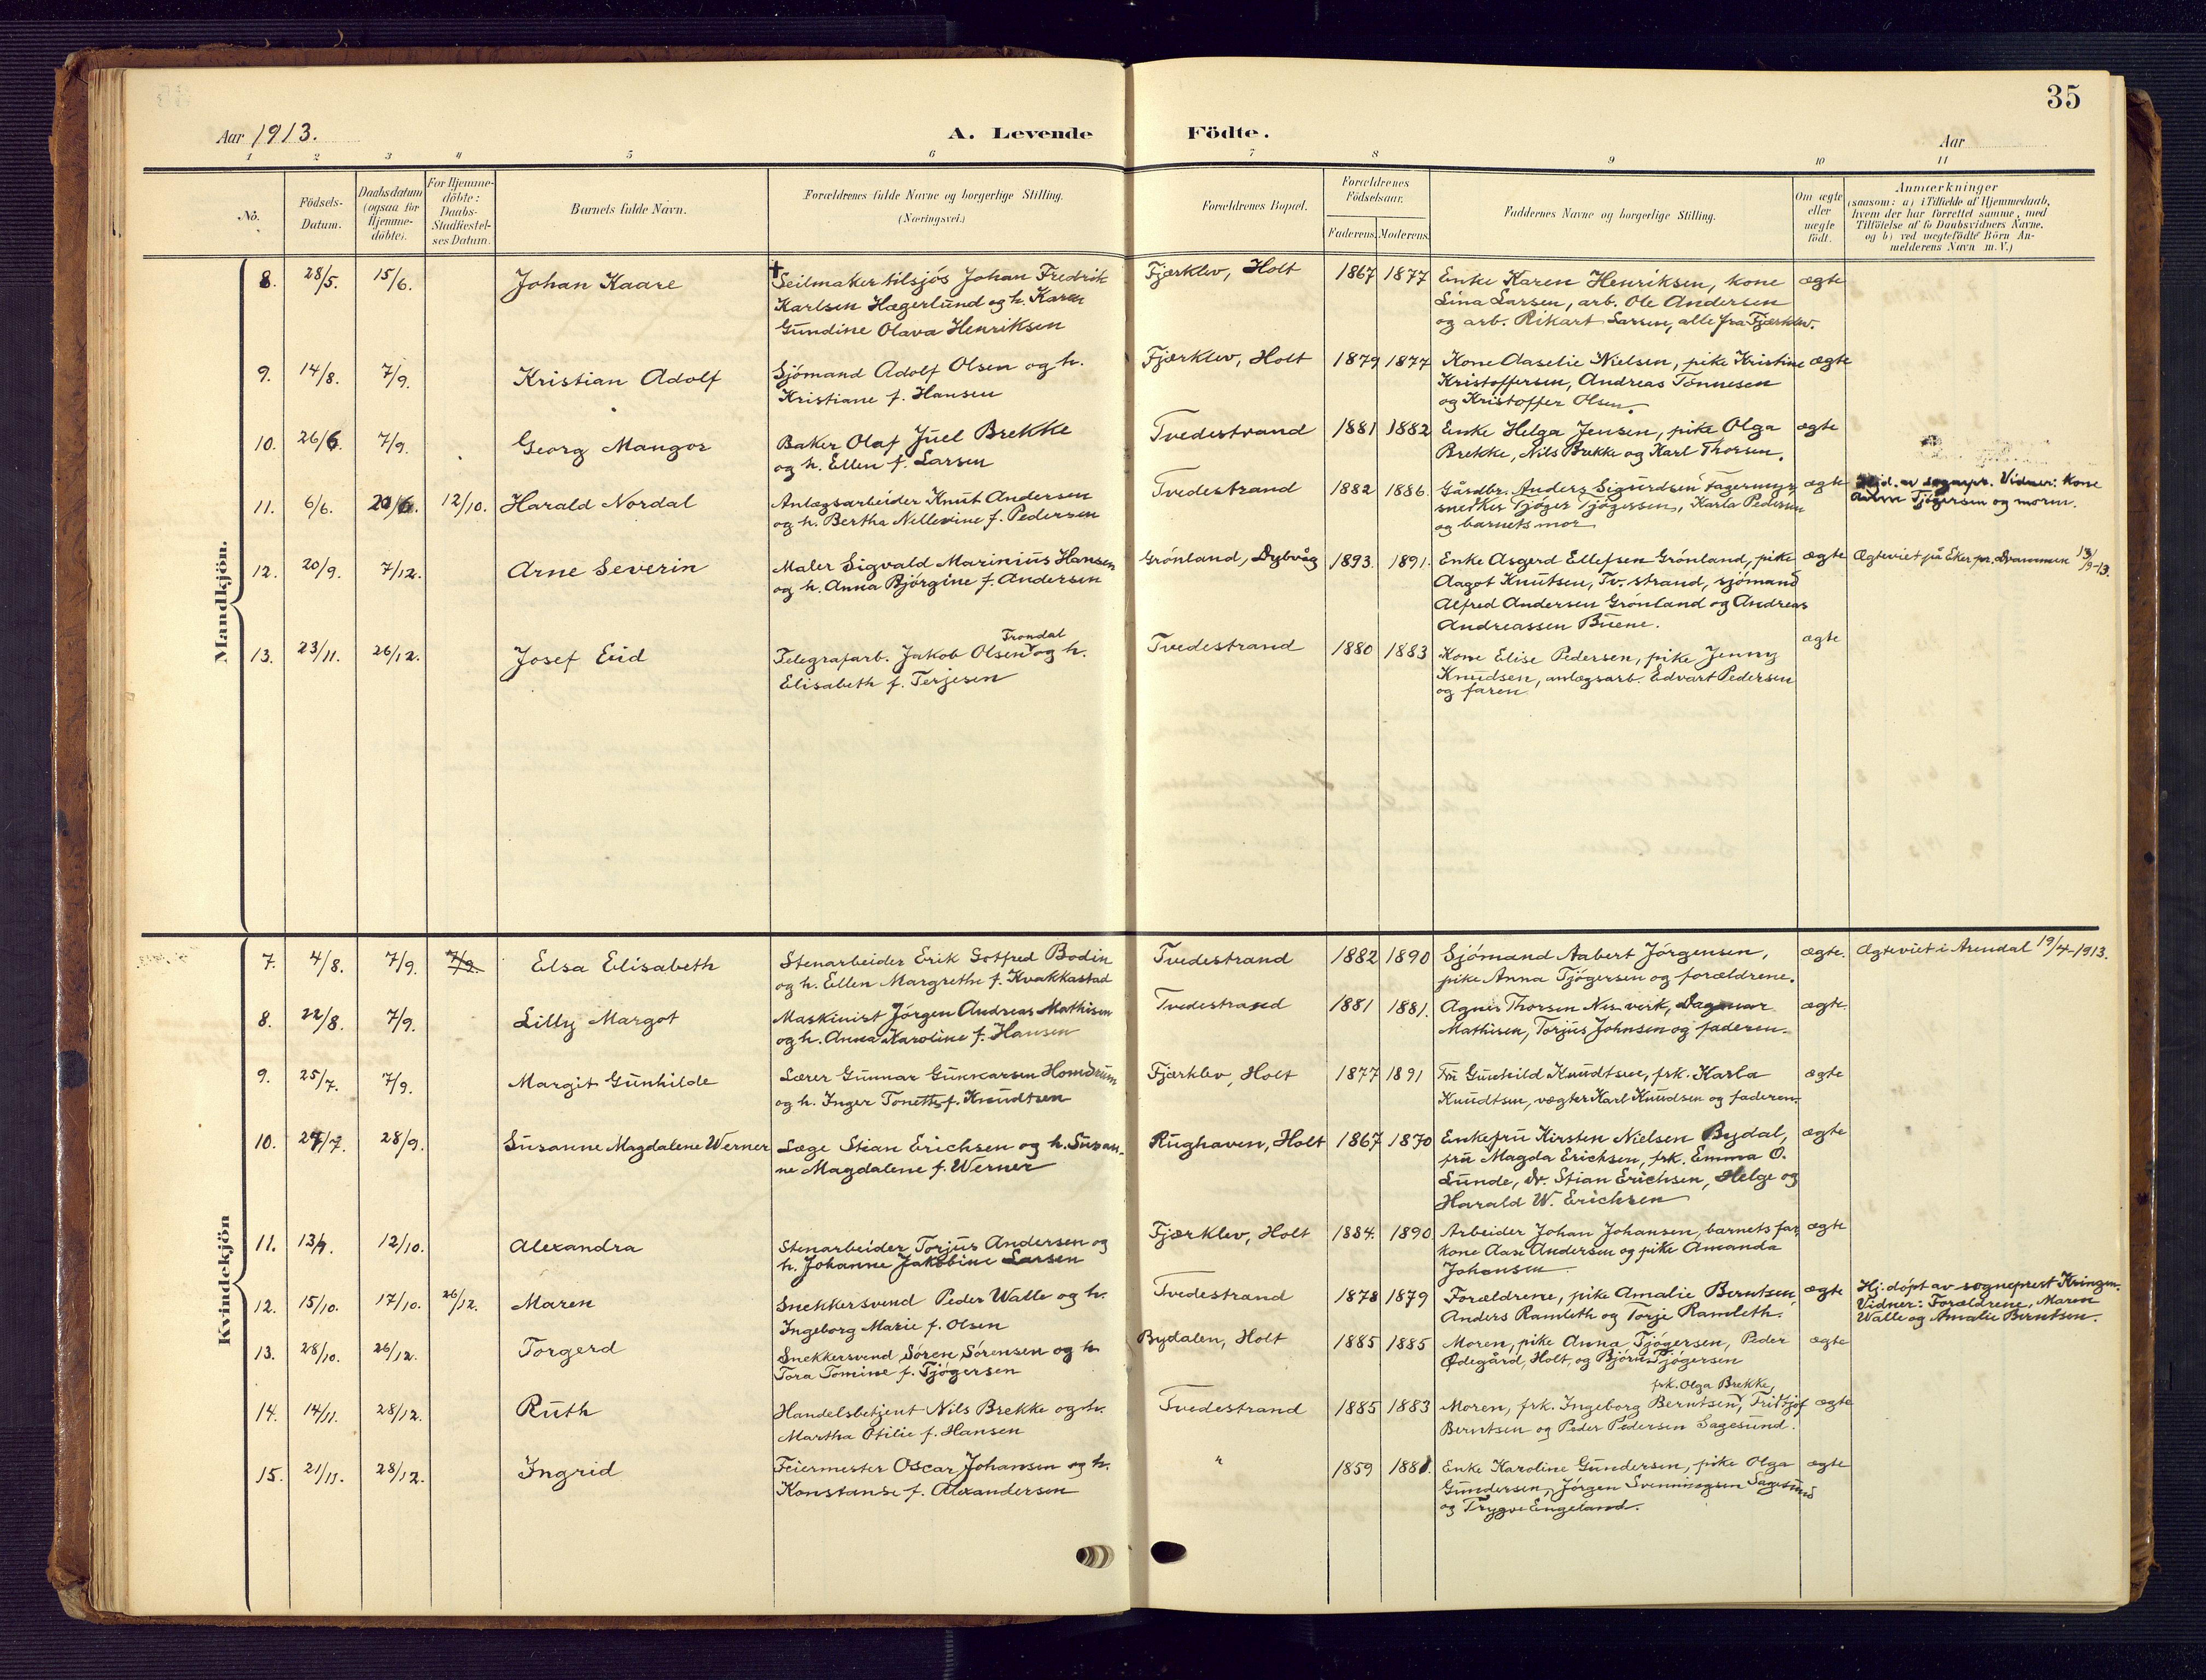 35
Aar 1913.
A. Levende Födte.
Aar
1 2 3 4 5 6 7 8 9 10 11
No.
Födsels-Datum.
Daabsdatum (ogsaa för Hjemme-döbte).
For Hjemme-döbte: Daabs-Stadfæstel-ses Datum.
Barnets fulde Navn.
Forældrenes fulde Navne og borgerlige Stilling.
(Næringsvei.)
Forældrenes Bopæl.
Forældrenes Födselsaar.
Faderens. Moderens.
Faddernes Navne og borgerlige Stilling.
Om ægte eller uægte födt.
Anmærkninger
(saasom: a) i Tilfælde af Hjemmedaab,
hvem der har forrettet samme, med
Tilföielse af to Daabsvidners Navne.
og b) ved uægtefödte Börn An-
melderens Navn m. V.)
Mandkjön.
8. 28/5. 15/6. Johan Kaare
† Seilmaker tilsjós Johan Fredrik
Karlsen Hægerlund og h. Karen
Gundine Olava Henriksen
Fjærklev, Holt 1867 1877
Enke Karen Henriksen, kone
Lina Larsen, arb. Ole Andersen
og arb. Rikart Larsen, alle fra Fjærklev.
ægte
9. 14/8. 7/9. Kristian Adolf
Sjómand Adolf Olsen og h.
Kristiane f. Hansen
Fjærklev, Holt 1879 1877
Kone Aaselie Nielsen, pike Kristine
Kristoffersen, Andreas Tönnesen
og Kristoffer Olsen.
ægte
10. 26/6. 7/9. Georg Mangor
Baker Olaf Juel Brekke
og h. Ellen f. Larsen
Tvedestrand 1881 1882
Enke Helga Jensen, pike Olga
Brekke, Nils Brekke og Karl Thorsen.
ægte
11. 6/6. 20/6. 12/10. Harald Nordal
Anlægsarbeider Knut Andersen
og h. Bertha Nellevine f. Pedersen
Tvedestrand 1882 1886.
Gårdbr. Anders Sigurdsen Fagermyr,
snedker Tjöger Tjögersen, Karla Pedersen
og barnets mor
ægte
Hjd. av sognepr. Vidner: Kone
Anna Tjögersen og moren.
12. 20/9. 7/12. Arne Severin
Maler Sigvald Marinius Hansen
og h. Anna Bjórgine f. Andersen
Grónland, Dybvåg 1893. 1891.
Enke Asgerd Ellefsen Grónland, pike
Aagot Knutsen, Tv.strand, sjómand
Alfred Andersen Grónland og Andreas
Andreassen Buene.
ægte
Ægteviet på Eker pr. Drammen 13/9-13.
13. 23/11. 26/12. Josef Eid
Trondal
Telegrafarb. Jakob Olsen og h.
Elisabeth f. Terjesen
Tvedestrand 1880 1883
Kone Elise Pedersen, pike Jenny
Knudsen, anlægsarb. Edvart Pedersen
og faren
ægte
Kvindekjön
7. 4/8. 7/9. 7/9. Elsa Elisabeth
Stenarbeider Erik Gotfred Bodin
og h. Ellen Margrethe f. Kvakkestad
Tvedestrand 1882 1890
Sjómand Aabert Jórgensen,
pike Anna Tjógersen og forældrene.
ægte.
Ægteviet i Arendal 19/4-1913.
8. 22/8. 7/9. Lilly Margot
Maskinist Jórgen Andreas Mathisen
og h. Anna Karoline f. Hansen
Tvedestrand 1881 1881.
Agnes Thorsen Nes verk, Dagmar
Mathisen, Torjus Johnsen og faderen.
ægte.
9. 25/7. 7/9. Margit Gunhilde
Lærer Gunnar Gunnarsen Homdrum
og h. Inger Tonette f. Knudtsen
Fjærklev, Holt 1877 1891
Fru Gunhild Knudtsen, frk. Karla
Knudtsen, vægter Karl Knudsen og faderen.
ægte
10. 27/7. 28/9. Susanne Magdalene Werner
Læge Stian Erichsen og h. Susan-
ne Magdalene f. Werner
Rughaven, Holt 1867 1870
Enkefru Kirsten Nielsen Bydal,
fru Magda Erichsen, frk. Emma O.
Lunde, dr. Stian Erichsen, Helge og
Harald W. Erichsen
ægte
11. 13/9. 12/10. Alexandra
Stenarbeider Torjus Andersen og
h. Johanne Jakobine Larsen
Fjærklev, Holt 1884. 1890
Arbeider Johan Johansen, barnets far,
kone Aase Andersen og pike Amanda
Johansen
ægte
12. 15/10. 17/10. 26/12. Maren
Snekkersvend Peder Walle og h.
Ingeborg Marie f. Olsen
Tvedestrand 1878 1879
Forældrene, pike Amalie Berntsen,
Anders Ramleth og Torje Ramleth.
ægte
Hj. döpt av sogneprest Kringen.
Vidner: Forældrene, Maren
Walle og Amalie Berntsen.
13. 28/10. 26/12. Torgerd
Snekkersvend Sóren Sórensen og h.
Tora Tomine f. Tjógersen
Bydalen, Holt 1885 1885
Moren, pike Anna Tjógersen, Peder
Ødegård, Holt, og Björn Tjógersen
ægte
14. 14/11. 28/12. Ruth
Handelsbetjent Nils Brekke og h.
Martha Otilie f. Hansen
Tvedestrand 1885 1883
frk. Olga Brekke,
Moren, frk. Ingeborg Berntsen, Fritjof
Berntsen og Peder Pedersen Sagesund.
ægte
15. 21/11. 28/12. Ingrid
Feiermester Oscar Johansen og h.
Konstanse f. Alexandersen
" 1859 1881.
Enke Karoline Gundersen, pike Olga
Gundersen, Jórgen Svenningsen Sagesund
og Trygve Engeland.
ægte